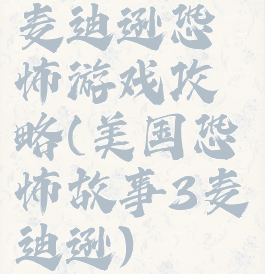 麦迪逊恐
怖游戏攻
略(美国恐
怖故事3麦
迪逊)